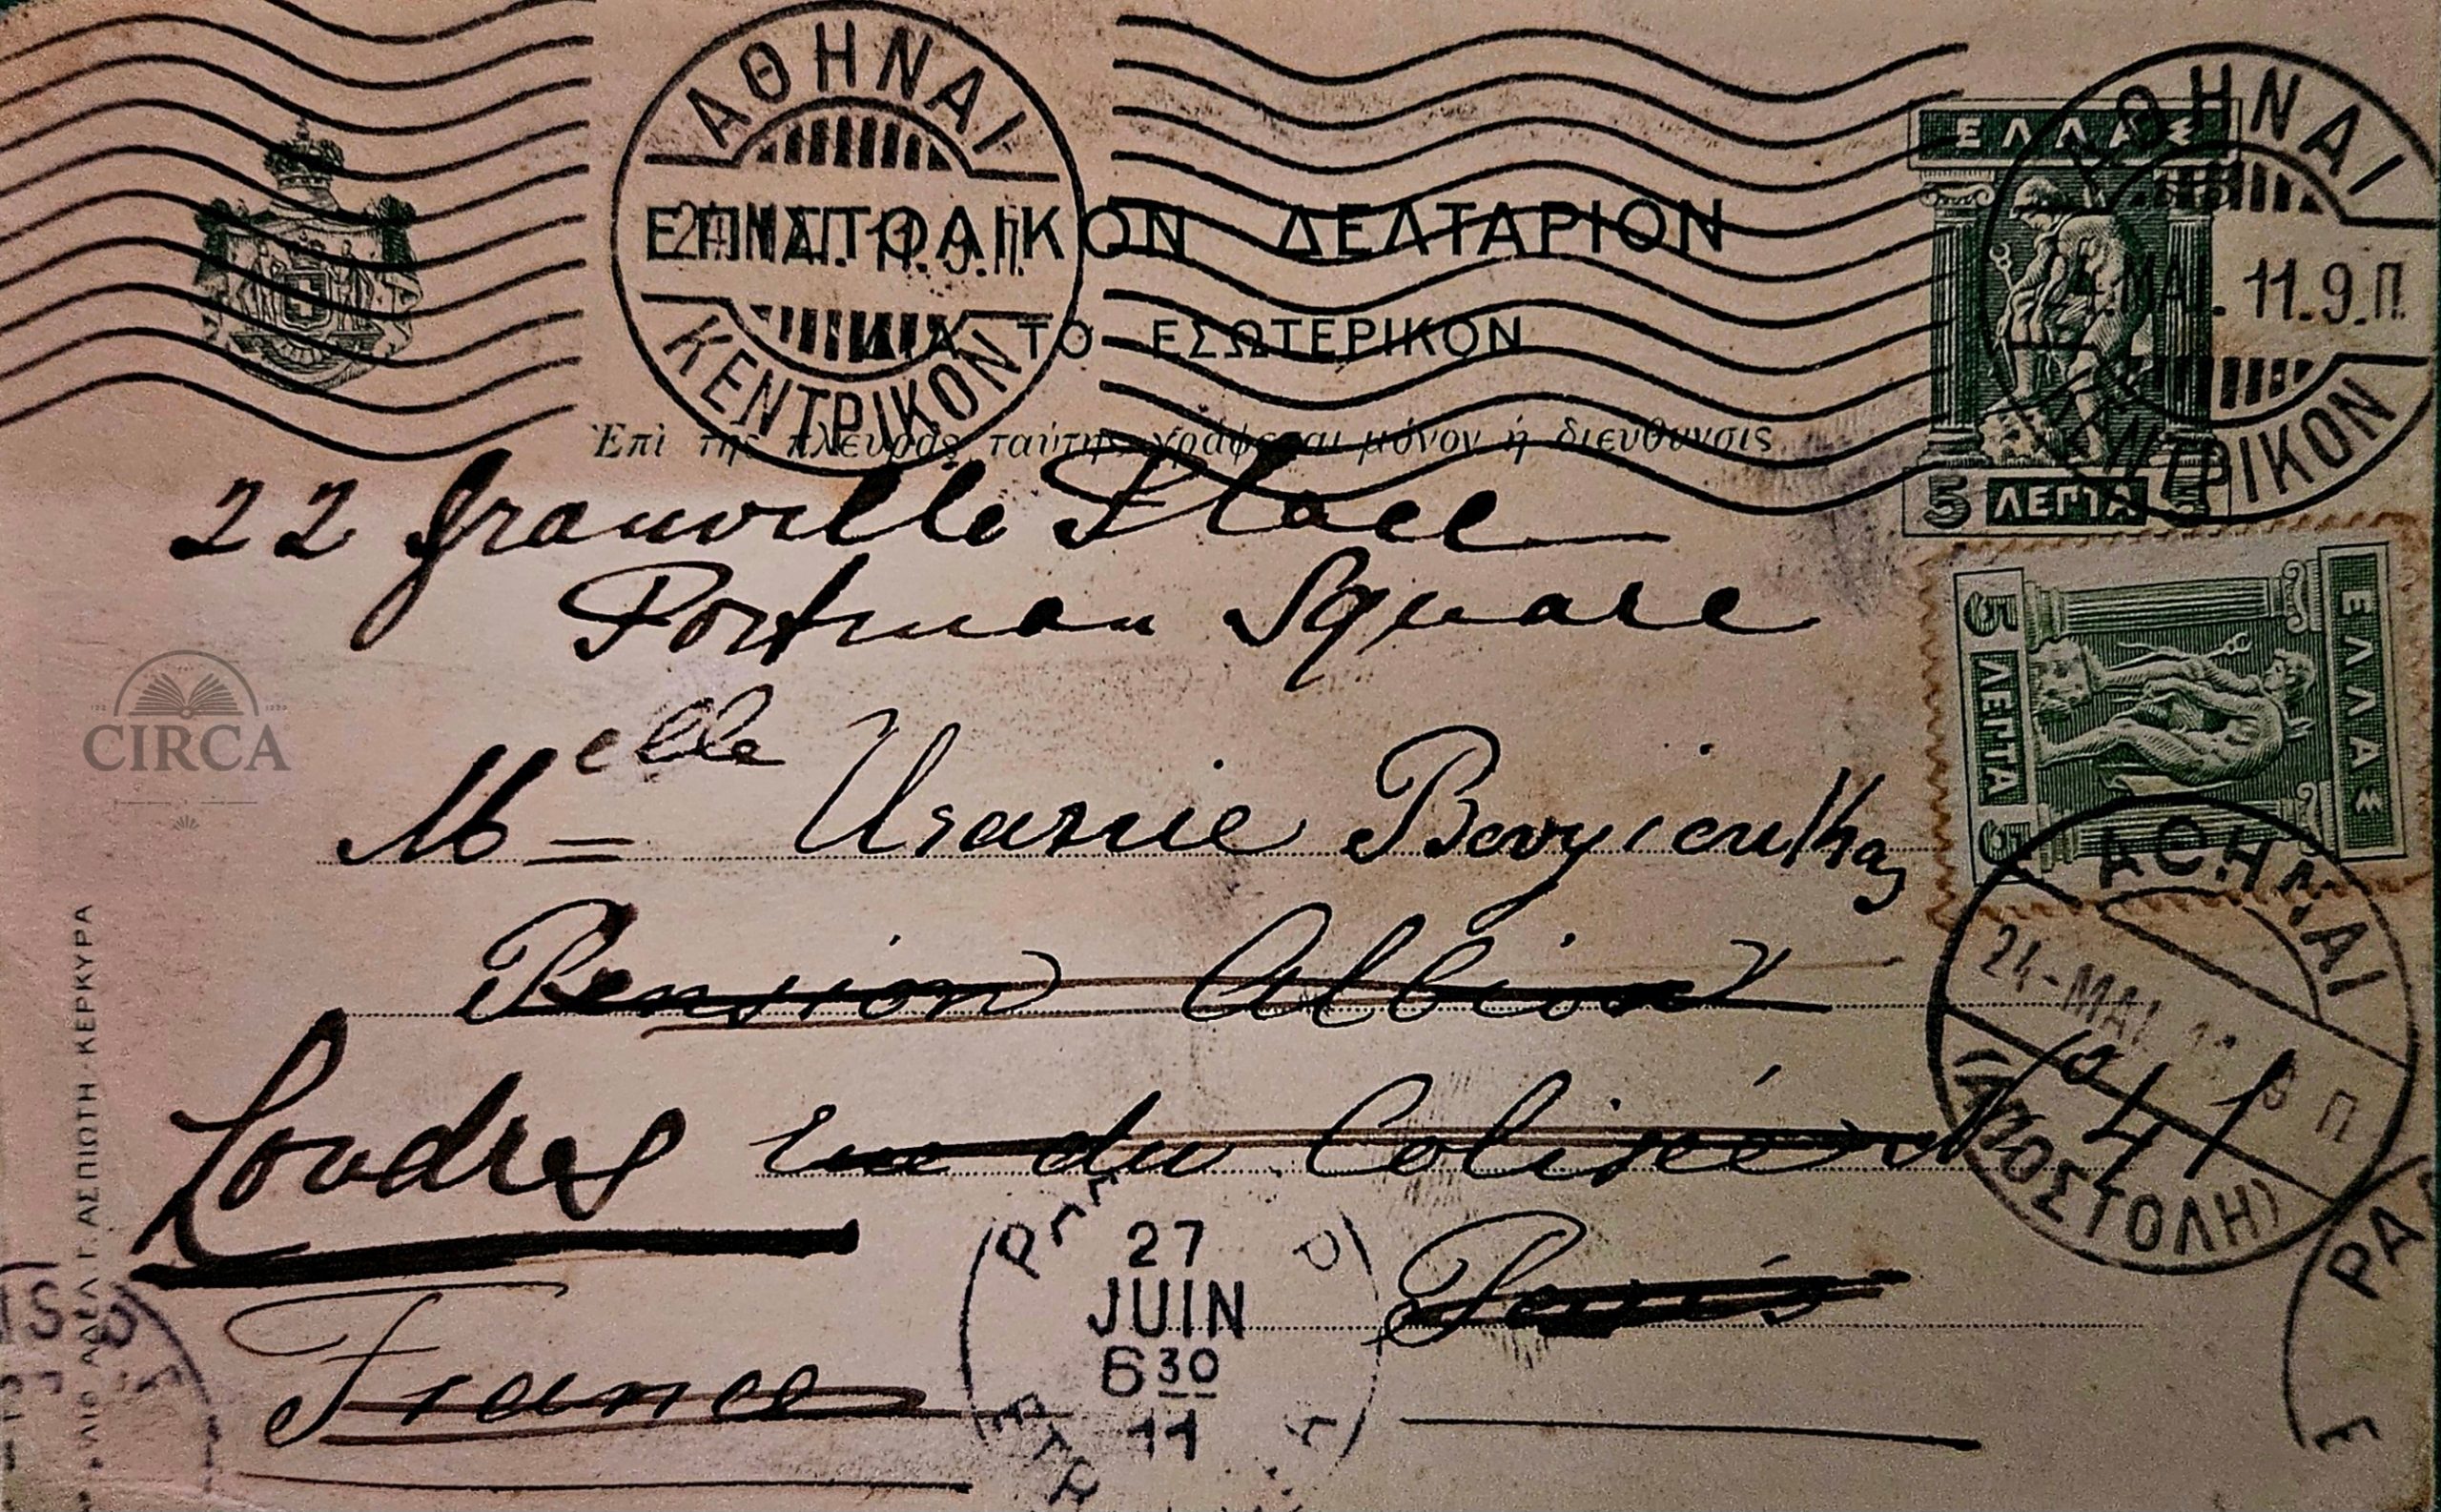 ΑΘΗΝΑΙ
24 ΜΑΙ. 11. 9. Π.
ΚΕΝΤΡΙΚΟΝ
ΑΘΗΝΑΙ
ΜΑΙ. 11. 9. Π.
ΚΕΝΤΡΙΚΟΝ
ΕΠΙΣΤΟΛΙΚΟΝ ΔΕΛΤΑΡΙΟΝ
ΔΙΑ ΤΟ ΕΣΩΤΕΡΙΚΟΝ
Ἐπὶ τῆς πλευρᾶς ταύτης γράφεται μόνον ἡ διεύθυνσις
ΕΛΛΑΣ
5 ΛΕΠΤΑ 5
22 Granville Place
Portman Square
ΕΛΛΑΣ
5 ΛΕΠΤΑ 5
CIRCA
Melle Uranie
Pension Albion
Londres rue du Colisée
41
Paris
France
ΑΘΗΝΑΙ
24-ΜΑΙ. Π
(ΑΠΟΣΤΟΛΗ)
27
JUIN
6 30
11
ΑΔΕΛ. Γ. ΑΣΠΙΩΤΗ-ΚΕΡΚΥΡΑ